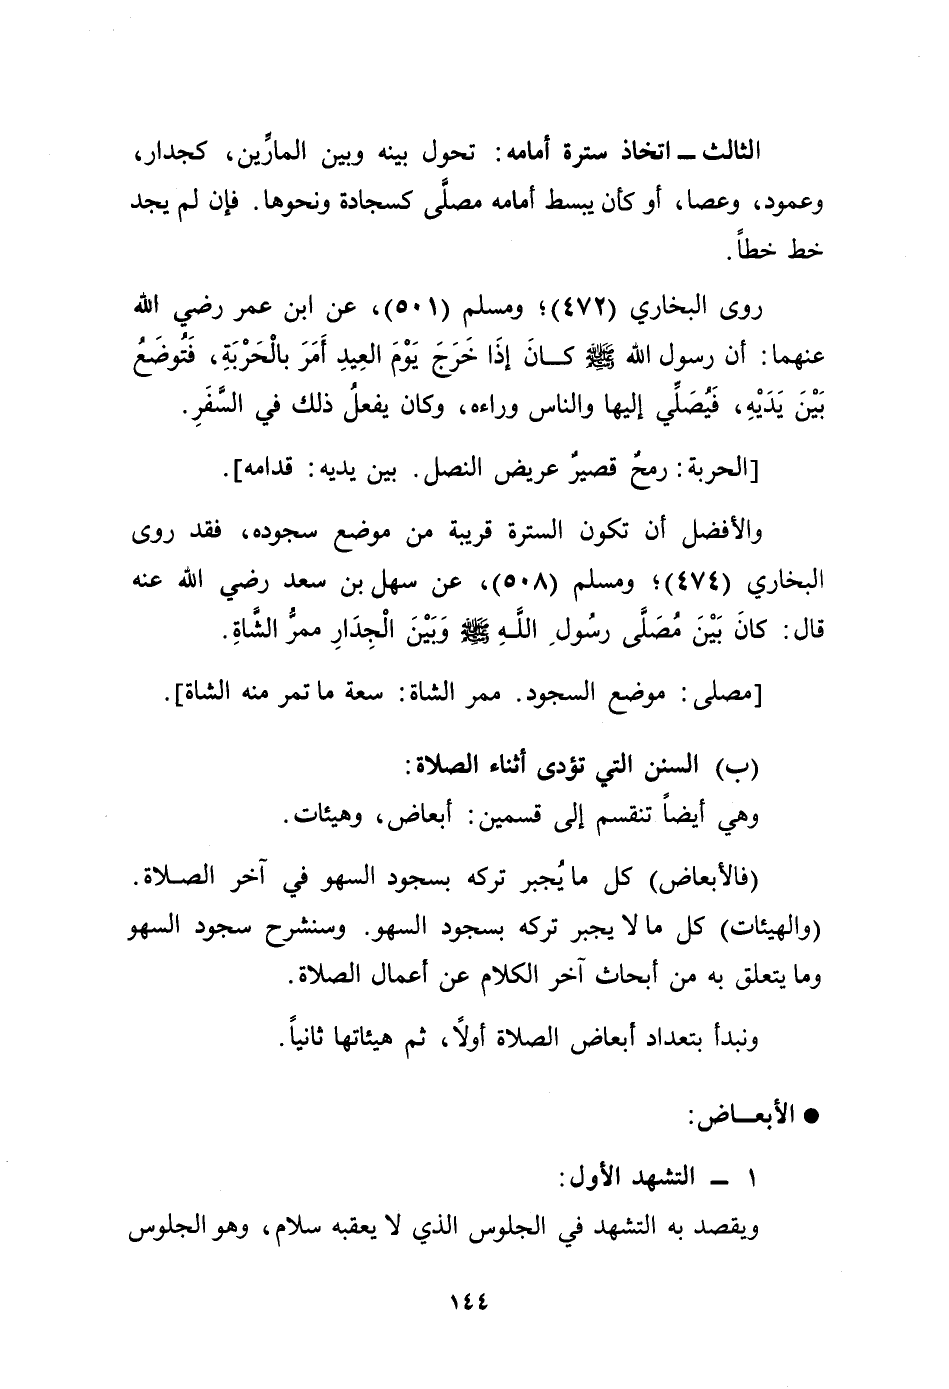 الثالث ــ اتخاذ سترة أمامه: تحول بينه وبين المارِّين، كجدار،
وعمود، وعصا، أو كأن يبسط أمامه مصلَّى كسجادة ونحوها. فإن لم يجد
خط خطاً.
روى البخاري (٤٧٢)؛ ومسلم (٥٠١)، عن ابن عمر رضي الله
عنهما: أن رسول الله ﷺ كــانَ إذَا خَرَجَ يَوْمَ العِيدِ أَمَرَ بالْحَرْبَةِ، فَتُوضَعُ
بَيْنَ يَدَيْهِ، فَيُصَلِّي إليها والناس وراءه، وكان يفعلُ ذلك في السَّفَرِ.
[الحربة: رمحٌ قصيرٌ عريض النصل. بين يديه: قدامه].
والأفضل أن تكون السترة قريبة من موضع سجوده، فقد روى
البخاري (٤٧٤)؛ ومسلم (٥٠٨)، عن سهل بن سعد رضي الله عنه
قال: كانَ بَيْنَ مُصَلَّى رسُولِ اللَّـهِ ﷺ وَبَيْنَ الْجِدَارِ ممرُّ الشَّاةِ.
[مصلى: موضع السجود. ممر الشاة: سعة ما تمر منه الشاة].
(ب) السنن التي تؤدى أثناء الصلاة:
وهي أيضاً تنقسم إلى قسمين: أبعاض، وهيئات.
(فالأبعاض) كل ما يُجبر تركه بسجود السهو في آخر الصـلاة.
(والهيئات) كل ما لا يجبر تركه بسجود السهو. وسنشرح سجود السهو
وما يتعلق به من أبحاث آخر الكلام عن أعمال الصلاة.
ونبدأ بتعداد أبعاض الصلاة أولاً، ثم هيئاتها ثانياً.
● الأبعــاض:
١ ــ التشهد الأول:
ويقصد به التشهد في الجلوس الذي لا يعقبه سلام، وهو الجلوس
١٤٤